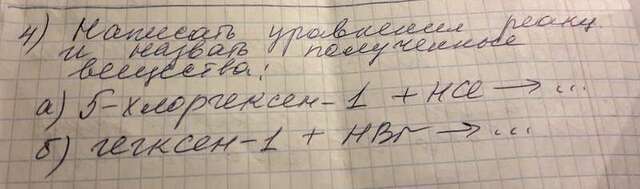 4) Написать уравнения реакц
и назвать полученные
вещества:
а) 5-хлоргексен-1 + HCl → ...
б) гегксен-1 + HBr → ...